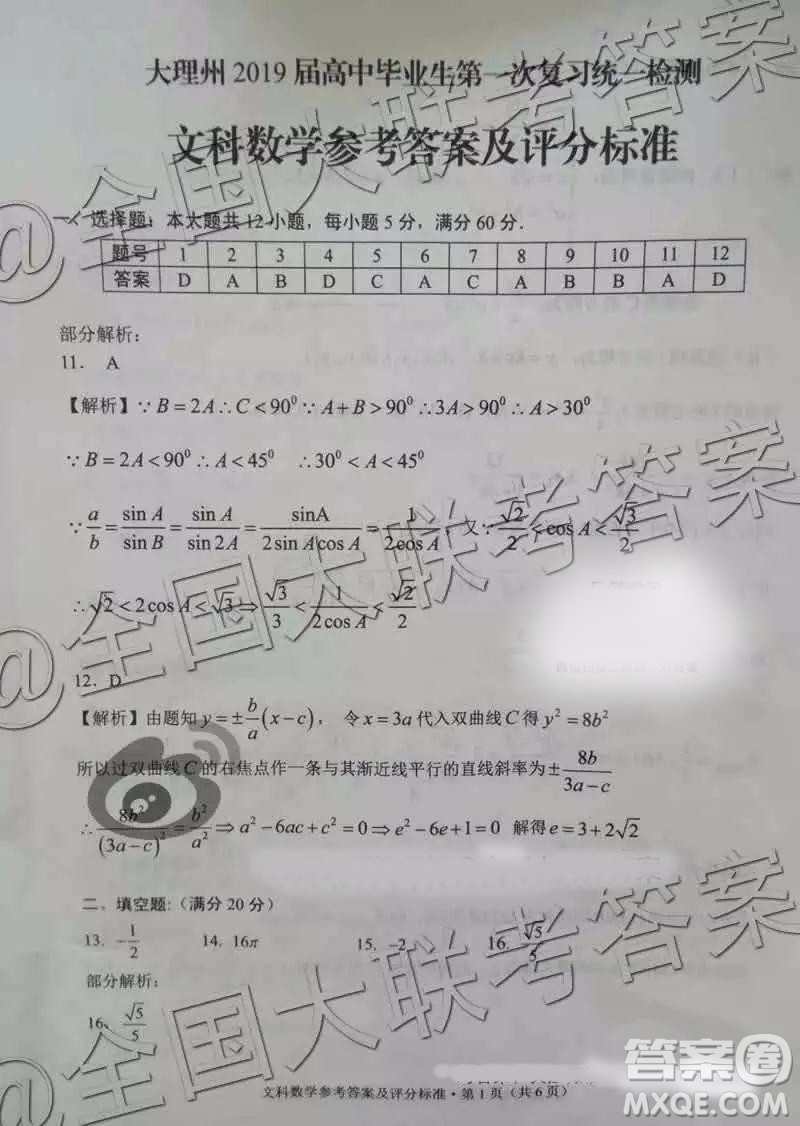 大理州 2019 届高中毕业生第一次复习统一检测
文科数学参考答案及评分标准
一、选择题：本大题共12小题，每小题5分，满分60分.
题号 1 2 3 4 5 6 7 8 9 10 11 12
答案 D A B D C A C A B B A D
部分解析：
11. A
【解析】∵B=2A∴C<90⁰ ∵A+B>90⁰∴3A>90⁰∴A>30⁰
∵B=2A<90⁰∴A<45⁰ ∴30⁰<A<45⁰
∵a/b=sin A/sin B=sin A/sin 2A=sinA/(2sin A cos A)=1/(2cos A)，又∵√2/2<cos A<√3/2
∴√2<2cos A<√3⇒√3/3<1/(2cos A)<√2/2
12. D
【解析】由题知y=±b/a(x−c)，令x=3a代入双曲线C得y²=8b²
所以过双曲线C的右焦点作一条与其渐近线平行的直线斜率为±8b/(3a−c)
∴8b²/(3a−c)²=b²/a²⇒a²−6ac+c²=0⇒e²−6e+1=0 解得e=3+2√2
二、填空题:(满分20分)
13. −1/2 14. 16π 15. -2 16. √5/5
部分解析：
16、√5/5
文科数学参考答案及评分标准·第1页（共6页）
@全国大联考答案
@全国大联考答案
答案圈
MXQE.COM